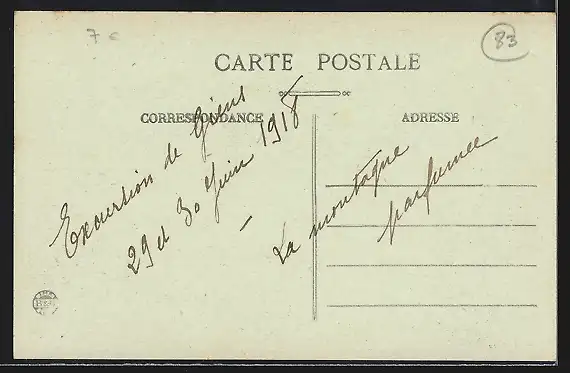 7 €
83
CARTE POSTALE
CORRESPONDANCE
ADRESSE
Excursion de Giens
29 et 30 Juin 1918
La montagne
parfumée